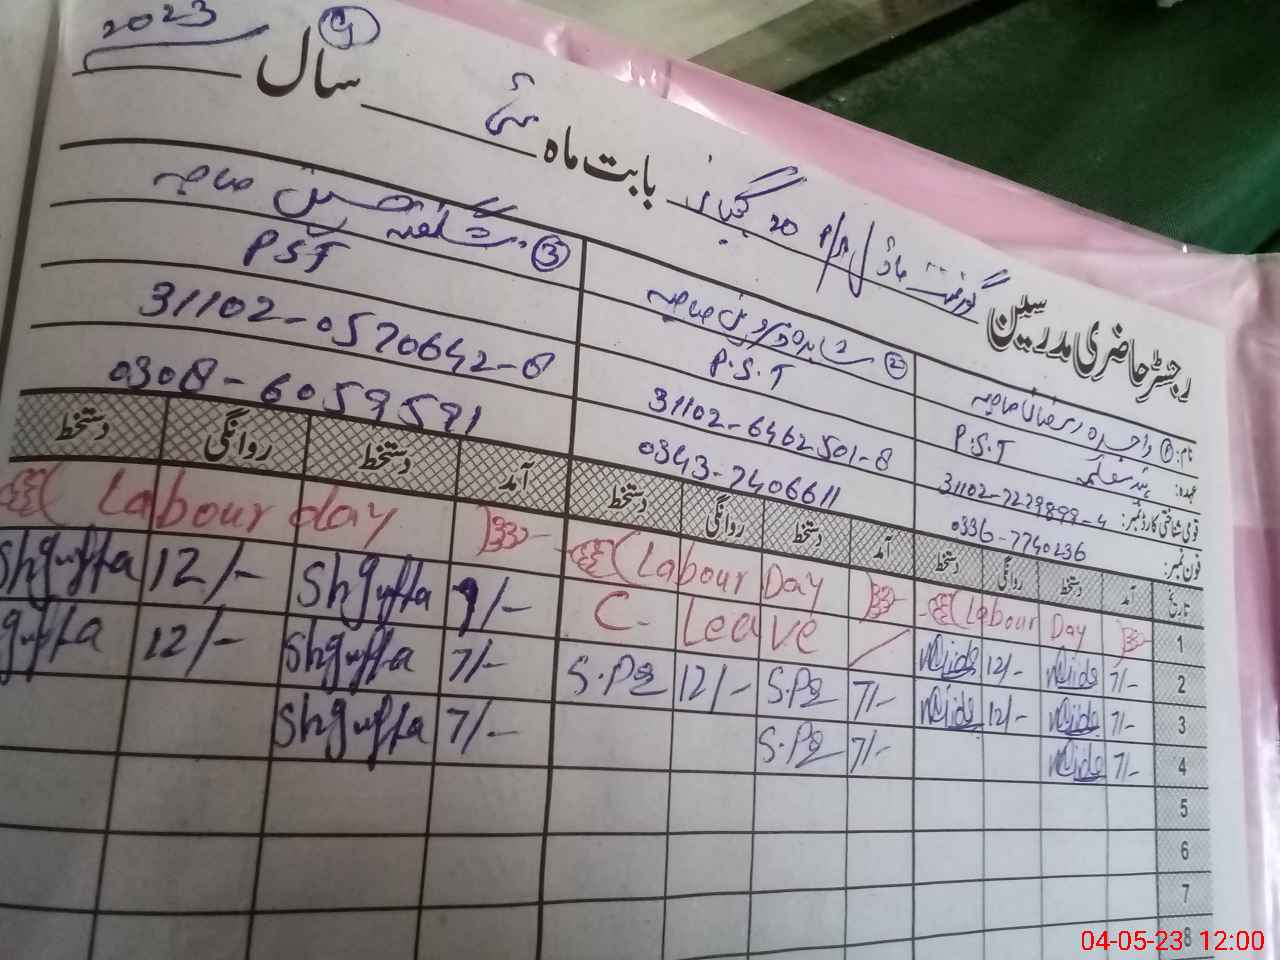 رجسٹر حاضری مدرسین گورنمنٹ ماڈل پرائمری 20 بابت ماہ مئی سال 2023
نام: ① واجدہ رمضان صاحبہ ② شاہدہ پروین صاحبہ ③ شگفتہ حسین صاحبہ
عہدہ: P.S.T P.S.T PST
قومی شناختی کارڈ نمبر: 31102-7229899-4 31102-6462501-8 31102-0570642-8
فون نمبر: 0336-7740236 0343-7406611 0308-6059591
تاریخ آمد دستخط روانگی دستخط آمد دستخط روانگی دستخط آمد دستخط روانگی دستخط
1 Labour Day Labour Day Labour day
2 7/- 12/- C. Leave 7/- Shgufta 12/- Shgufta
3 7/- 12/- 7/- S.P 12/- S.P 7/- Shgufta 12/- gufta
4 7/- 7/- S.P 7/- Shgufta
5
6
7
8
04-05-23 12:00